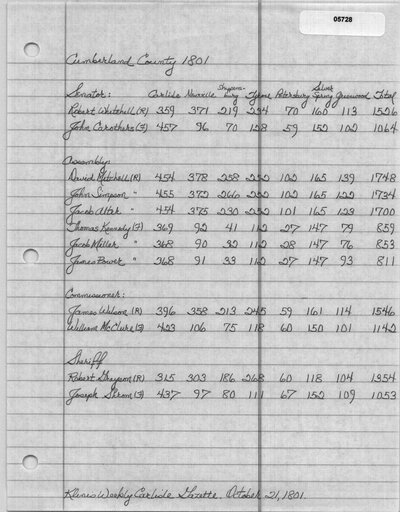 05728
Cumberland County 1801
Senator: Carlisle Newville Shippens-burg Tyrone Petersburg Silver Spring Greenwood Total
Robert Whitehill (R) 359 371 219 234 70 160 113 1526
John Carothers (F) 457 96 70 128 59 152 102 1064
Assembly:
David Mitchell (R) 454 378 258 252 102 165 139 1748
John Simpson " 455 373 266 252 102 165 122 1734
Jacob Alter " 454 375 230 252 101 165 123 1700
Thomas Kennedy (F) 369 92 41 112 27 147 79 859
Jacob Miller " 368 90 32 112 28 147 76 853
James Power " 368 91 33 112 27 147 93 811
Commissioner:
James Wilson (R) 396 358 213 245 59 161 114 1546
William McClure (F) 423 106 75 118 60 150 101 1142
Sheriff
Robert Grayson (R) 315 303 186 268 60 118 104 1354
Joseph Strom (F) 437 97 80 111 67 152 109 1053
Klines Weekly Carlisle Gazette. October 21, 1801.